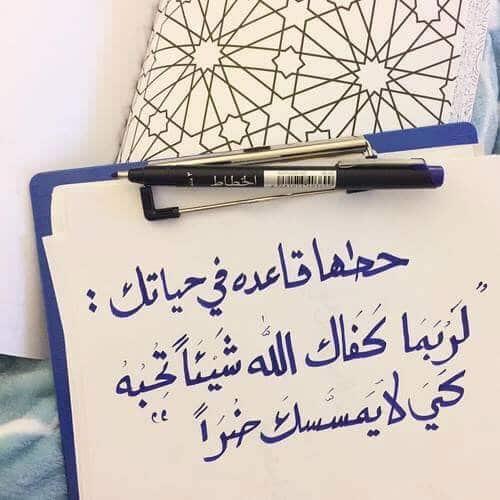 الخطاط
حطها قاعده في حياتك :
"لَرُبَمَا كَفَاك الله شَيْئَاً تُحِبُهُ
كَيَ لا يَمسَسكَ ضُرَاً"